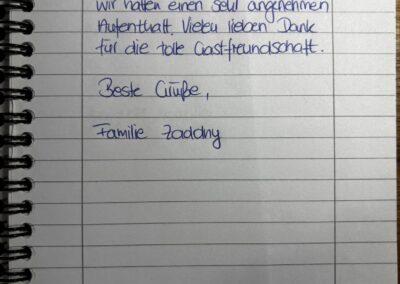 wir hatten einen sehr angenehmen
Aufenthalt. Vielen lieben Dank
für die tolle Gastfreundschaft.
Beste Grüße,
Familie Zaddny